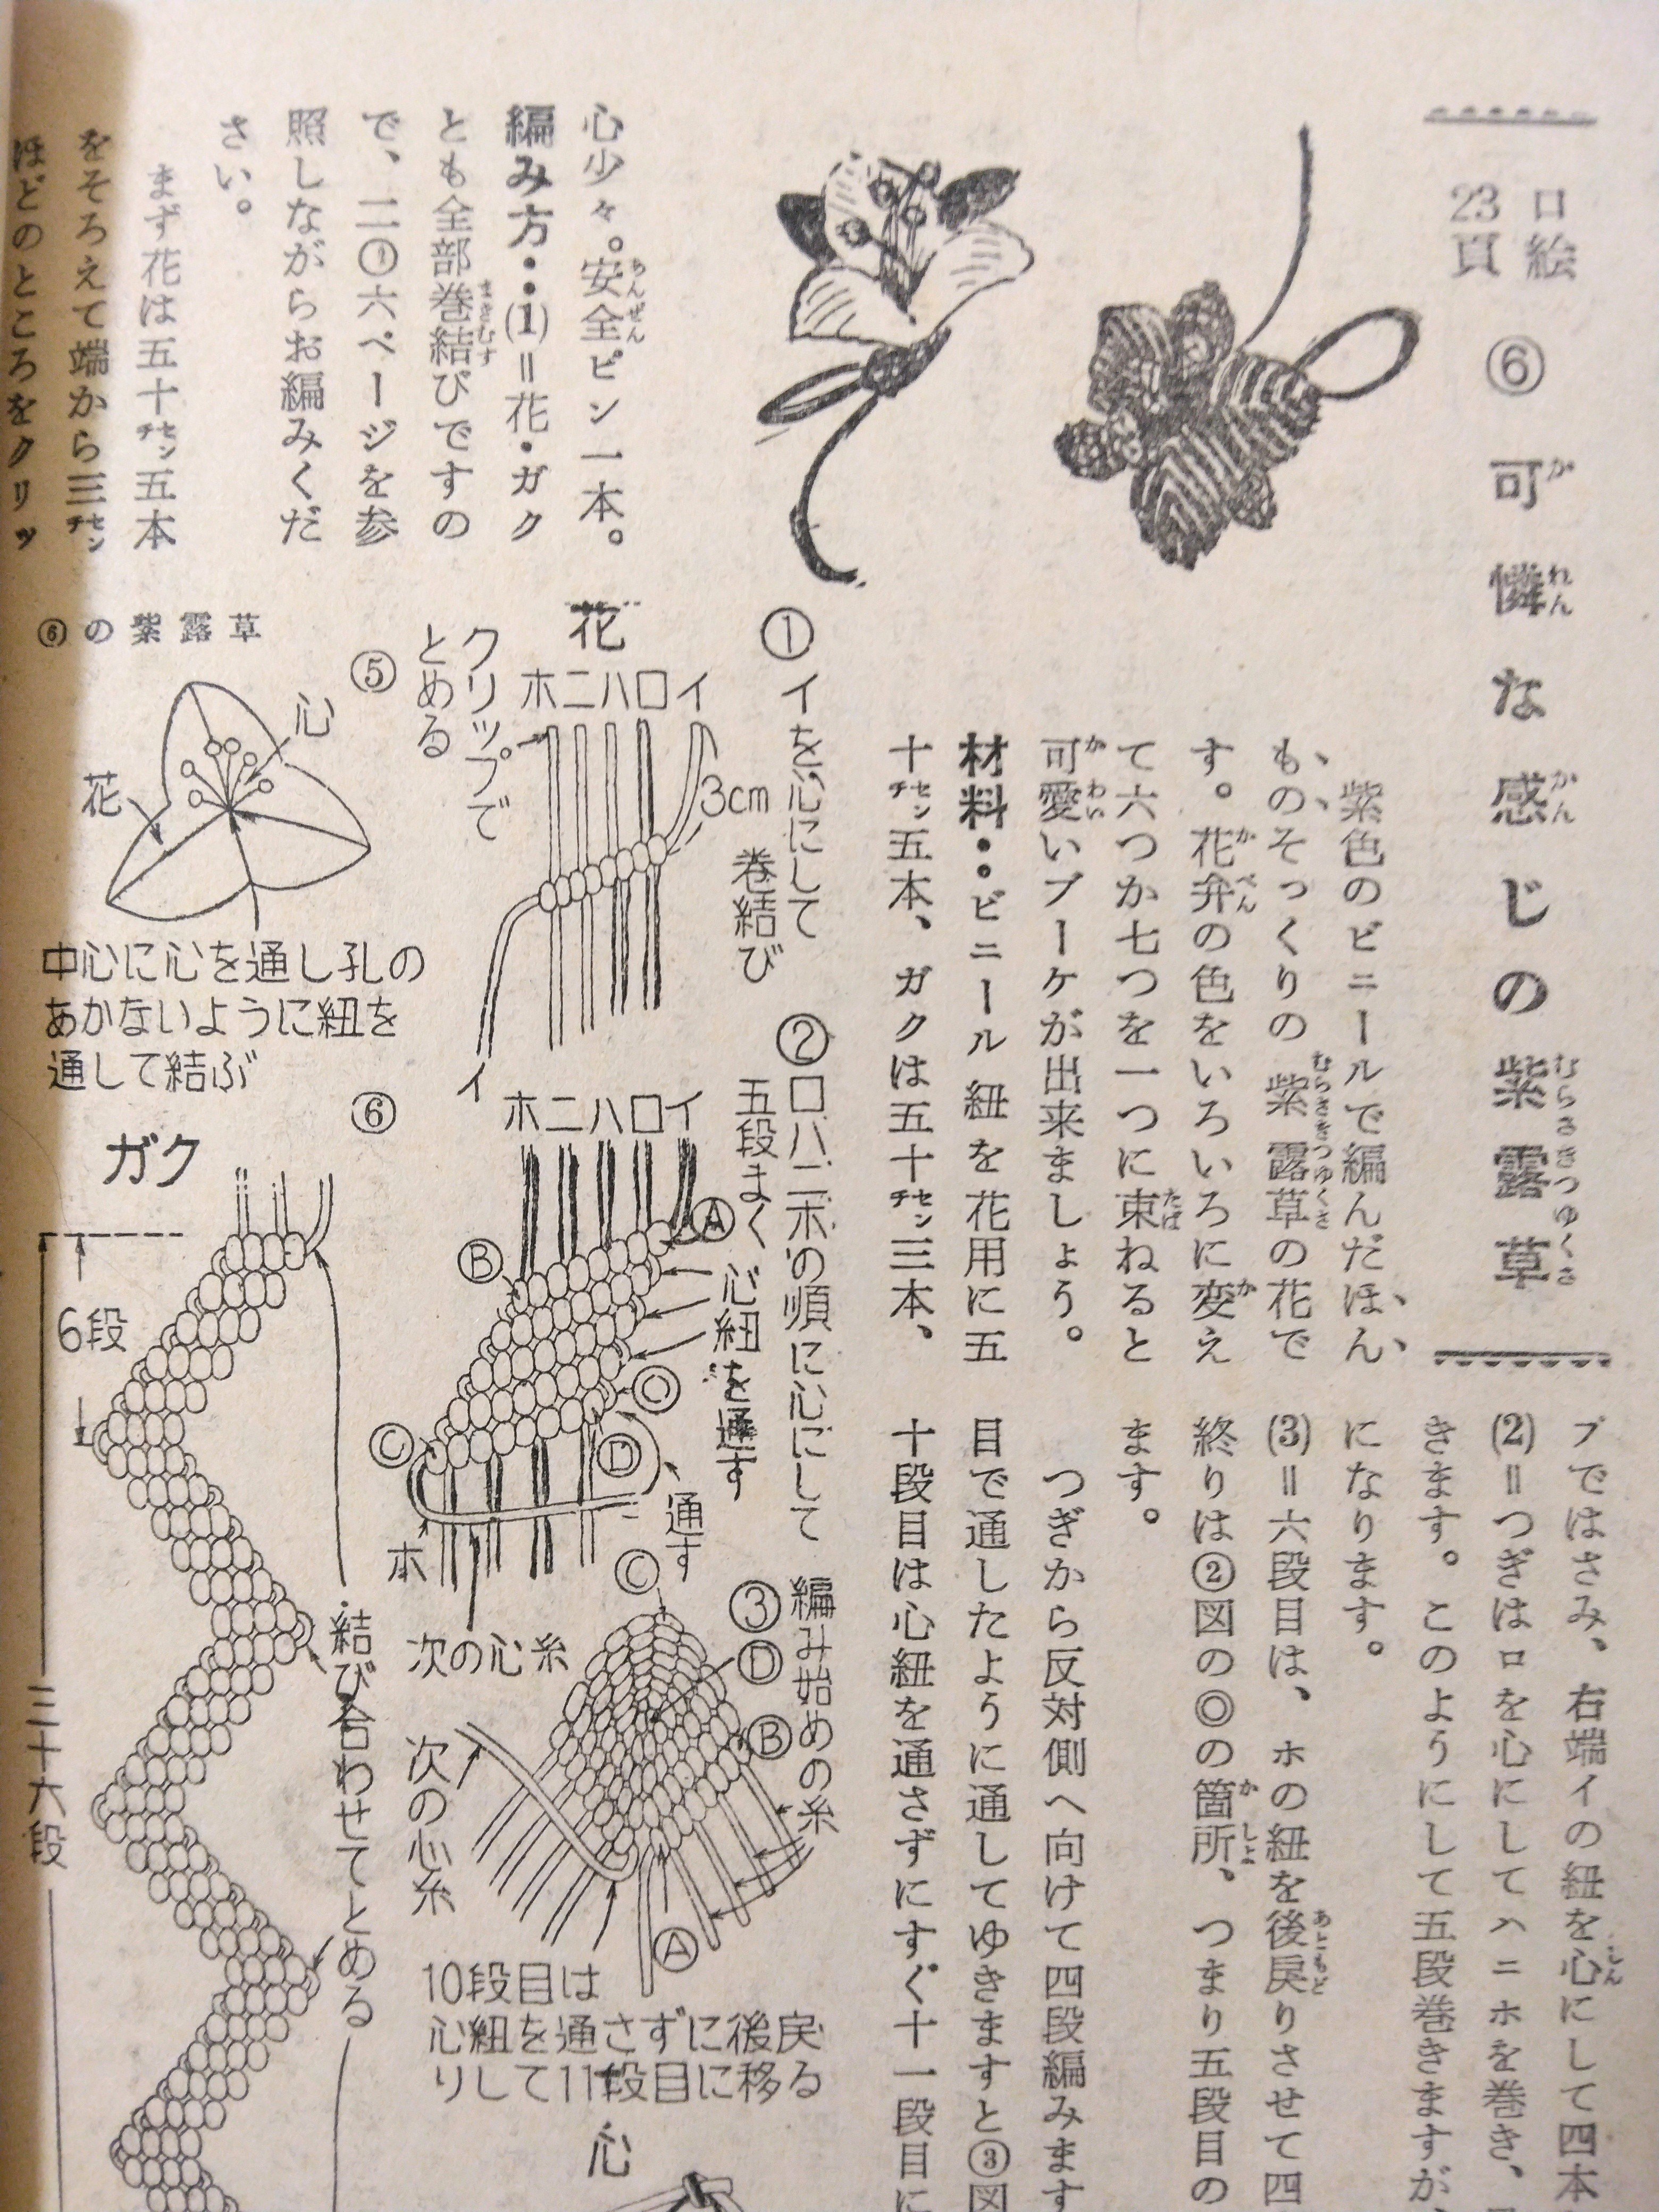 口絵
23頁
⑥可憐な感じの紫露草
紫色のビニールで編んだほん
ものそっくりの紫露草の花で
す。花弁の色をいろいろに変え
て六つか七つを一つに束ねると
可愛いブーケが出来ましょう。
材料‥ビニール紐を花用に五
十センチ五本、ガクは五十センチ三本、
心少々。安全ピン一本。
編み方‥(1)＝花・ガク
とも全部巻結びですの
で、二〇六ページを参
照しながらお編みくだ
さい。
まず花は五十センチ五本
をそろえて端から三センチ
ほどのところをクリッ
プではさみ、右端イの紐を心にして四本
(2)＝つぎはロを心にしてハニホを巻き、
きます。このようにして五段巻きますが、
になります。
(3)＝六段目は、ホの紐を後戻りさせて四
終りは②図の◎の箇所、つまり五段目の
ます。
つぎから反対側へ向けて四段編みます
目で通したように通してゆきますと③図
十段目は心紐を通さずにすぐ十一段目に
花
①イを心にして
巻結び
ホニハロイ
3cm
クリップで
とめる
イ
②ロハニホの順に心にして
五段まく
心紐を通す
ホニハロイ
Ⓐ
Ⓑ
◎
Ⓒ
Ⓓ
通す
ホ
次の心糸
③
編み始めの糸
Ⓒ
Ⓓ
Ⓑ
Ⓐ
次の心糸
10段目は
心紐を通さずに後戻
りして11段目に移る
心
⑥の紫露草
⑤
心
花
中心に心を通し孔の
あかないように紐を
通して結ぶ
⑥
ガク
6段
三十六段
結び合わせてとめる